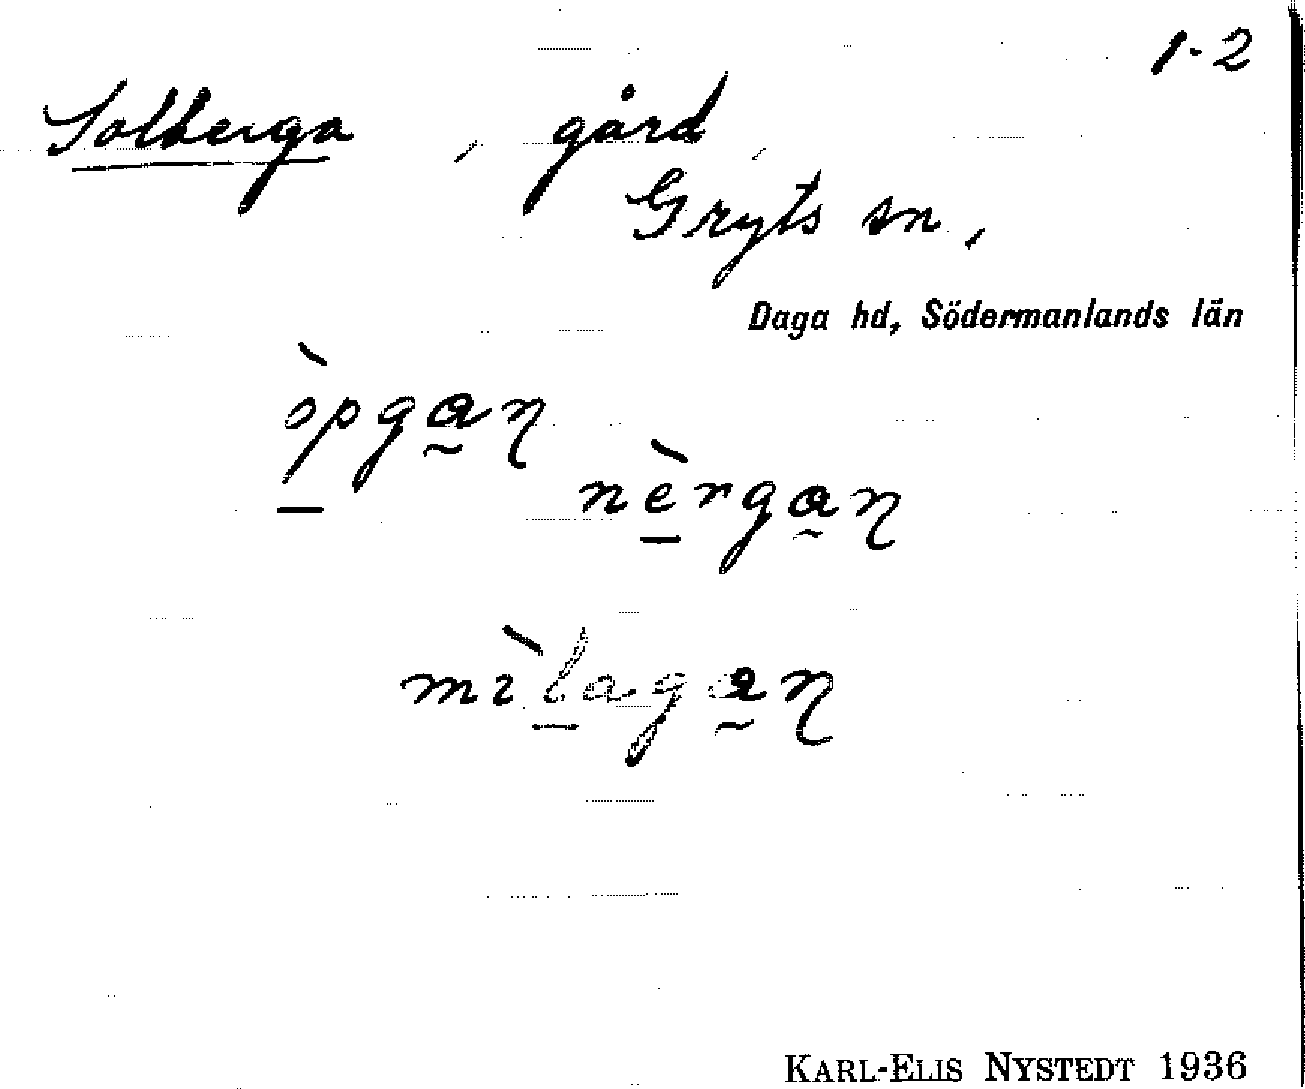 1-2
Solberga, gård,
Gryts sn,
Daga hd, Södermanlands län
òpgan
nèrgan
mìlagan
KARL-ELIS NYSTEDT 1936